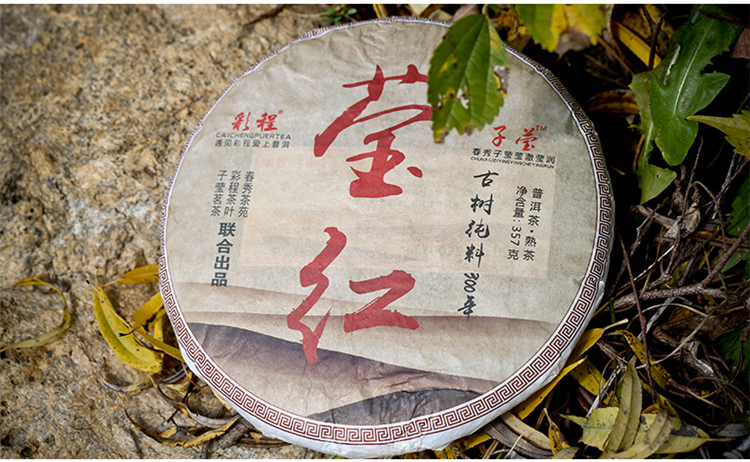 彩程®
CAICHENGPUERTEA
遇见彩程爱上普洱
莹红
子莹™
春秀子莹莹澈莹润
CHUNXIUZIYINGYINGCHEYINGRUN
普洱茶·熟茶
净含量:357克
古树纯料
春秀茶苑
彩程茶叶
子莹茗茶
联合出品